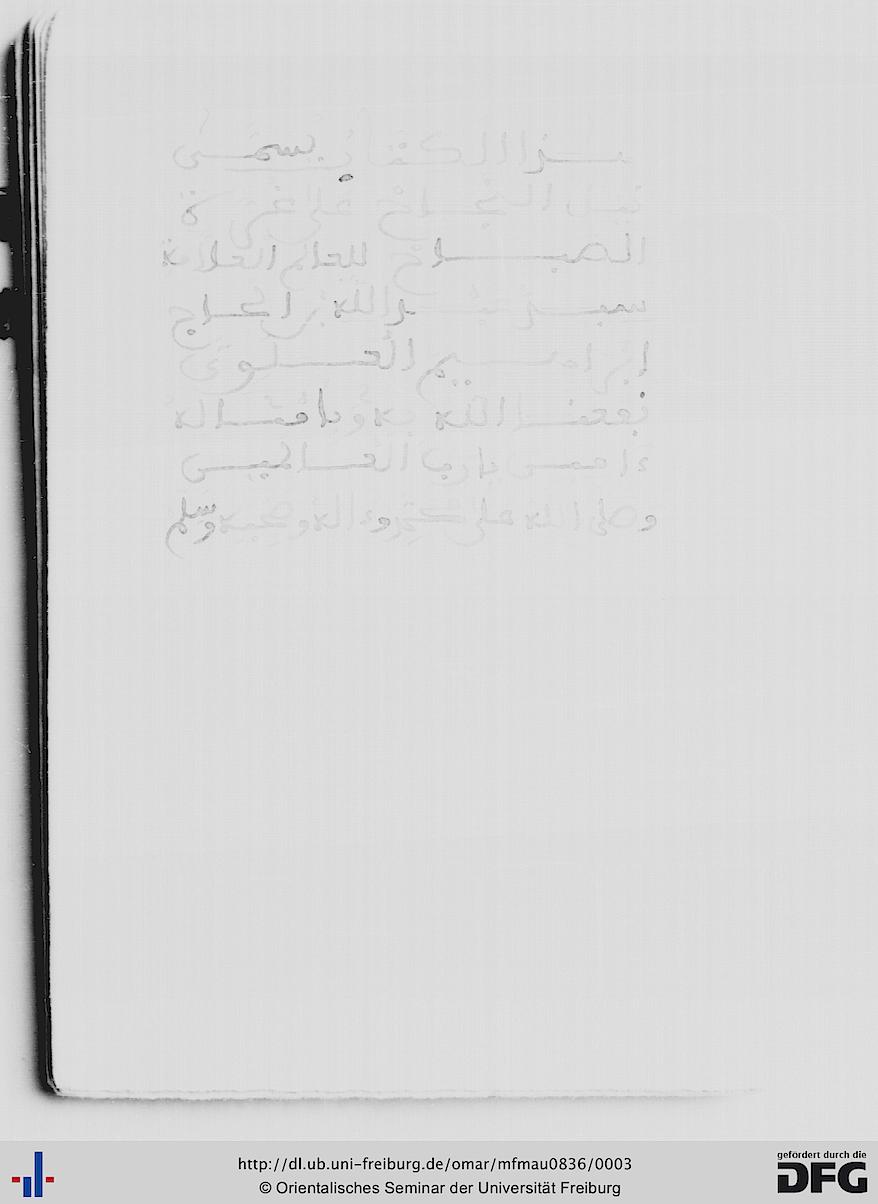 هذا الكتاب يسمى
نيل النجاح على غرة
الصباح للعالم العلامة
سيد عبد الله بن الحاج
ابراهيم العلوي
نفعنا الله به وبامثاله
ءامين يارب العالمين
وصلى الله على محمد وءاله وصحبه وسلم
http://dl.ub.uni-freiburg.de/omar/mfmau0836/0003
© Orientalisches Seminar der Universität Freiburg
gefördert durch die
DFG